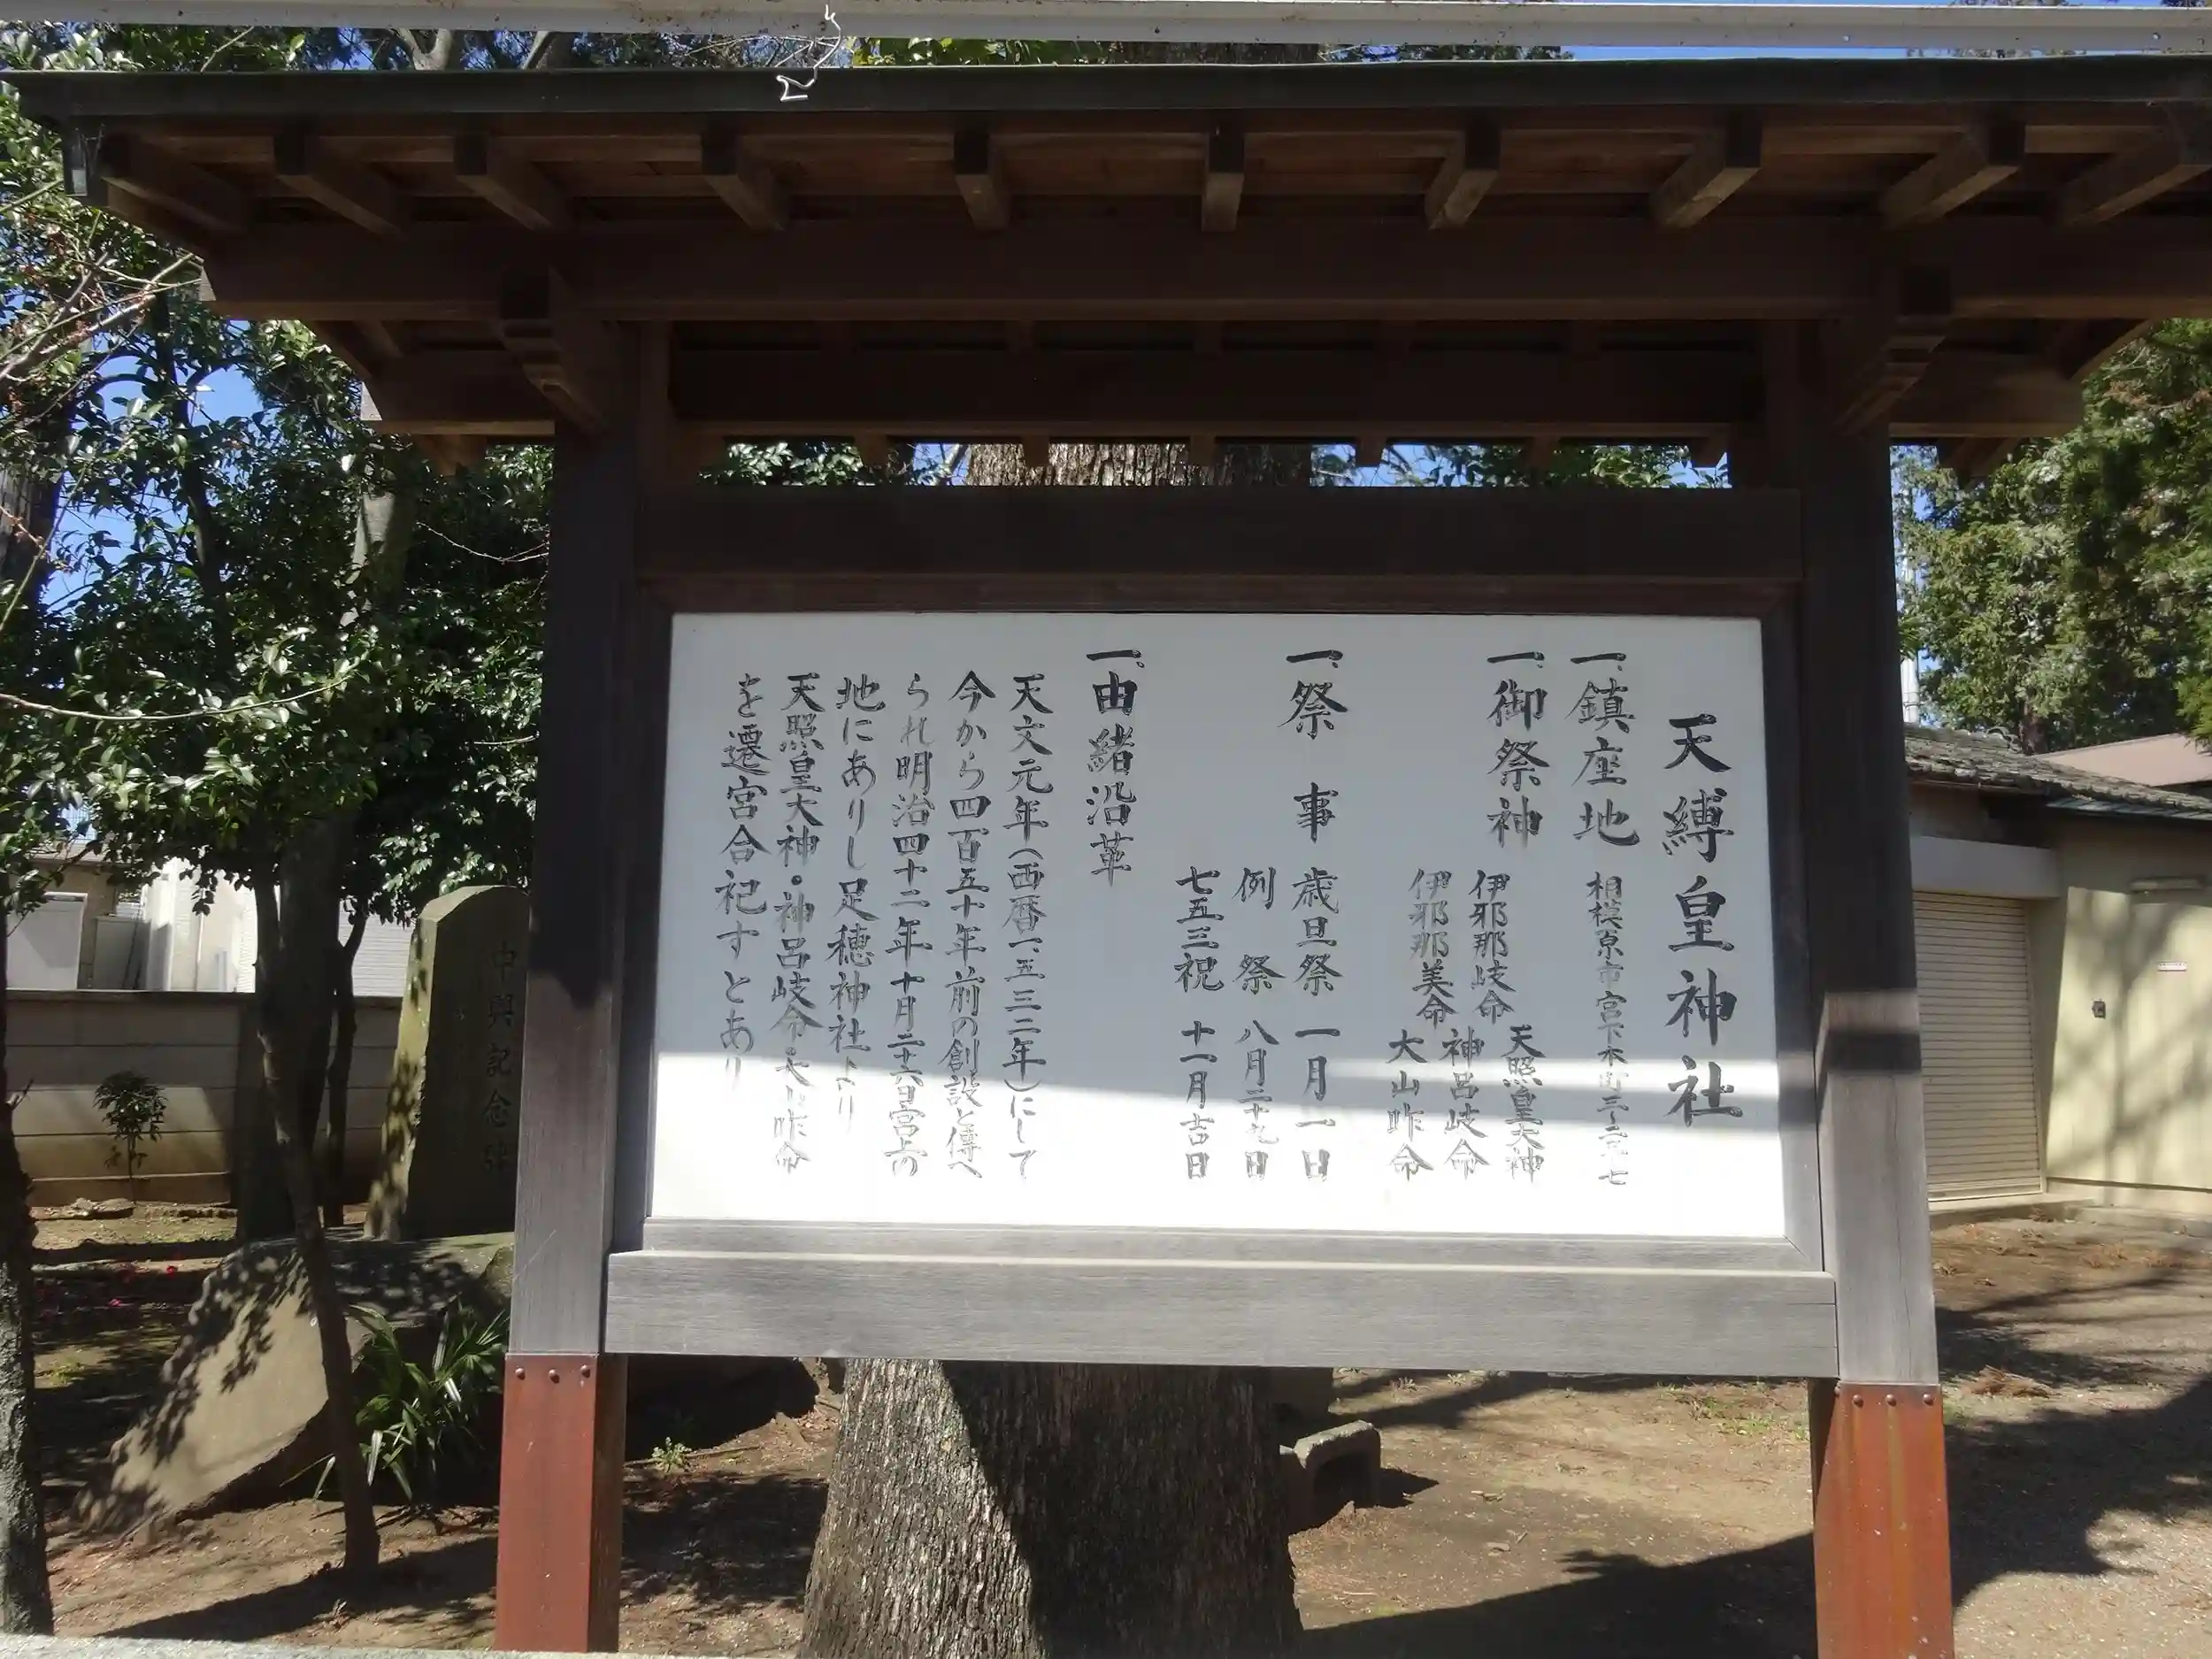 天縛皇神社
一、鎮座地 相模原市宮下本町
一、御祭神 伊邪那岐命 天照皇大神
神呂岐命
伊邪那美命
大山咋命
一、祭事 歳旦祭 一月一日
例祭 八月二十九日
七五三祝 十一月吉日
一、由緒沿革
天文元年(西暦一五三二年)にして
今から四百五十年前の創設と傳へ
られ明治四十二年十月二十六日宮上の
地にありし足穂神社より
天照皇大神・神呂岐命・大山咋命
を遷宮合祀すとあり
中興記念碑